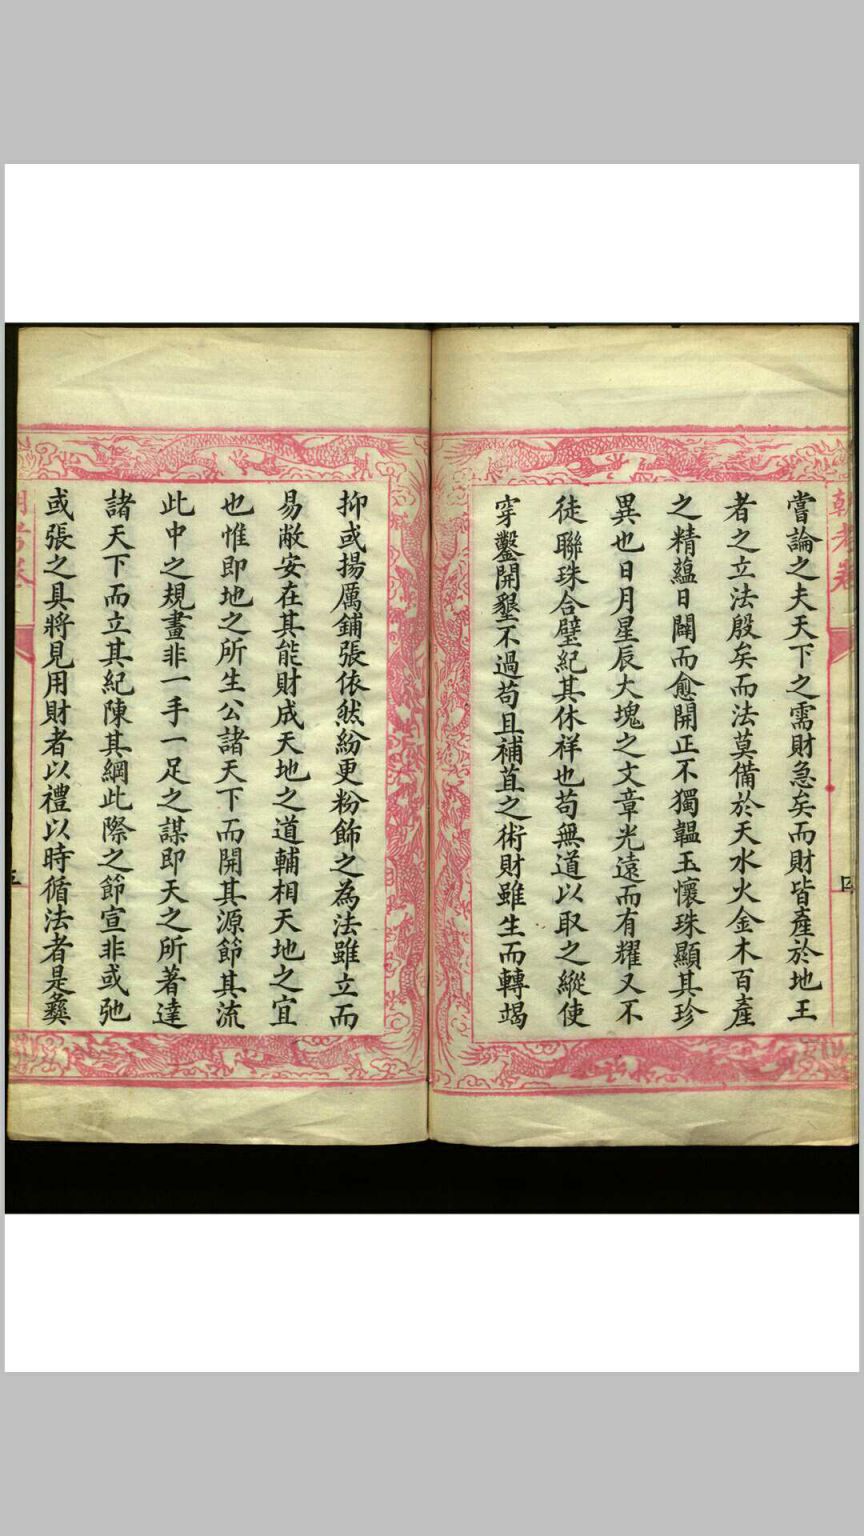 嘗論之夫天下之需財急矣而財皆產於地王
者之立法殷矣而法莫備於天水火金木百產
之精蘊日闢而愈開正不獨韞玉懷珠顯其珍
異也日月星辰大塊之文章光遠而有耀又不
徒聯珠合璧紀其休祥也苟無道以取之縱使
穿鑿開墾不過苟且補苴之術財雖生而轉竭
抑或揚厲鋪張依然紛更粉飾之為法雖立而
易敝安在其能財成天地之道輔相天地之宜
也惟即地之所生公諸天下而開其源節其流
此中之規畫非一手一足之謀即天之所著達
諸天下而立其紀陳其綱此際之節宣非或弛
或張之具將見用財者以禮以時循法者是彝